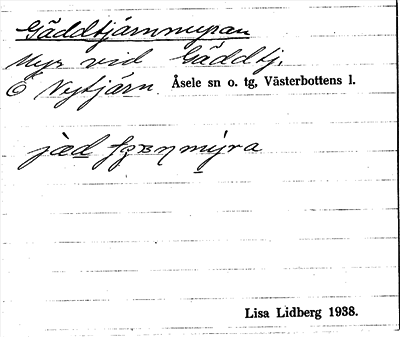 Gäddtjärnmyran
Myr vid Gäddtj.
Ö Nejtjärn. Åsele sn o. tg, Västerbottens l.
mýra
Lisa Lidberg 1938.